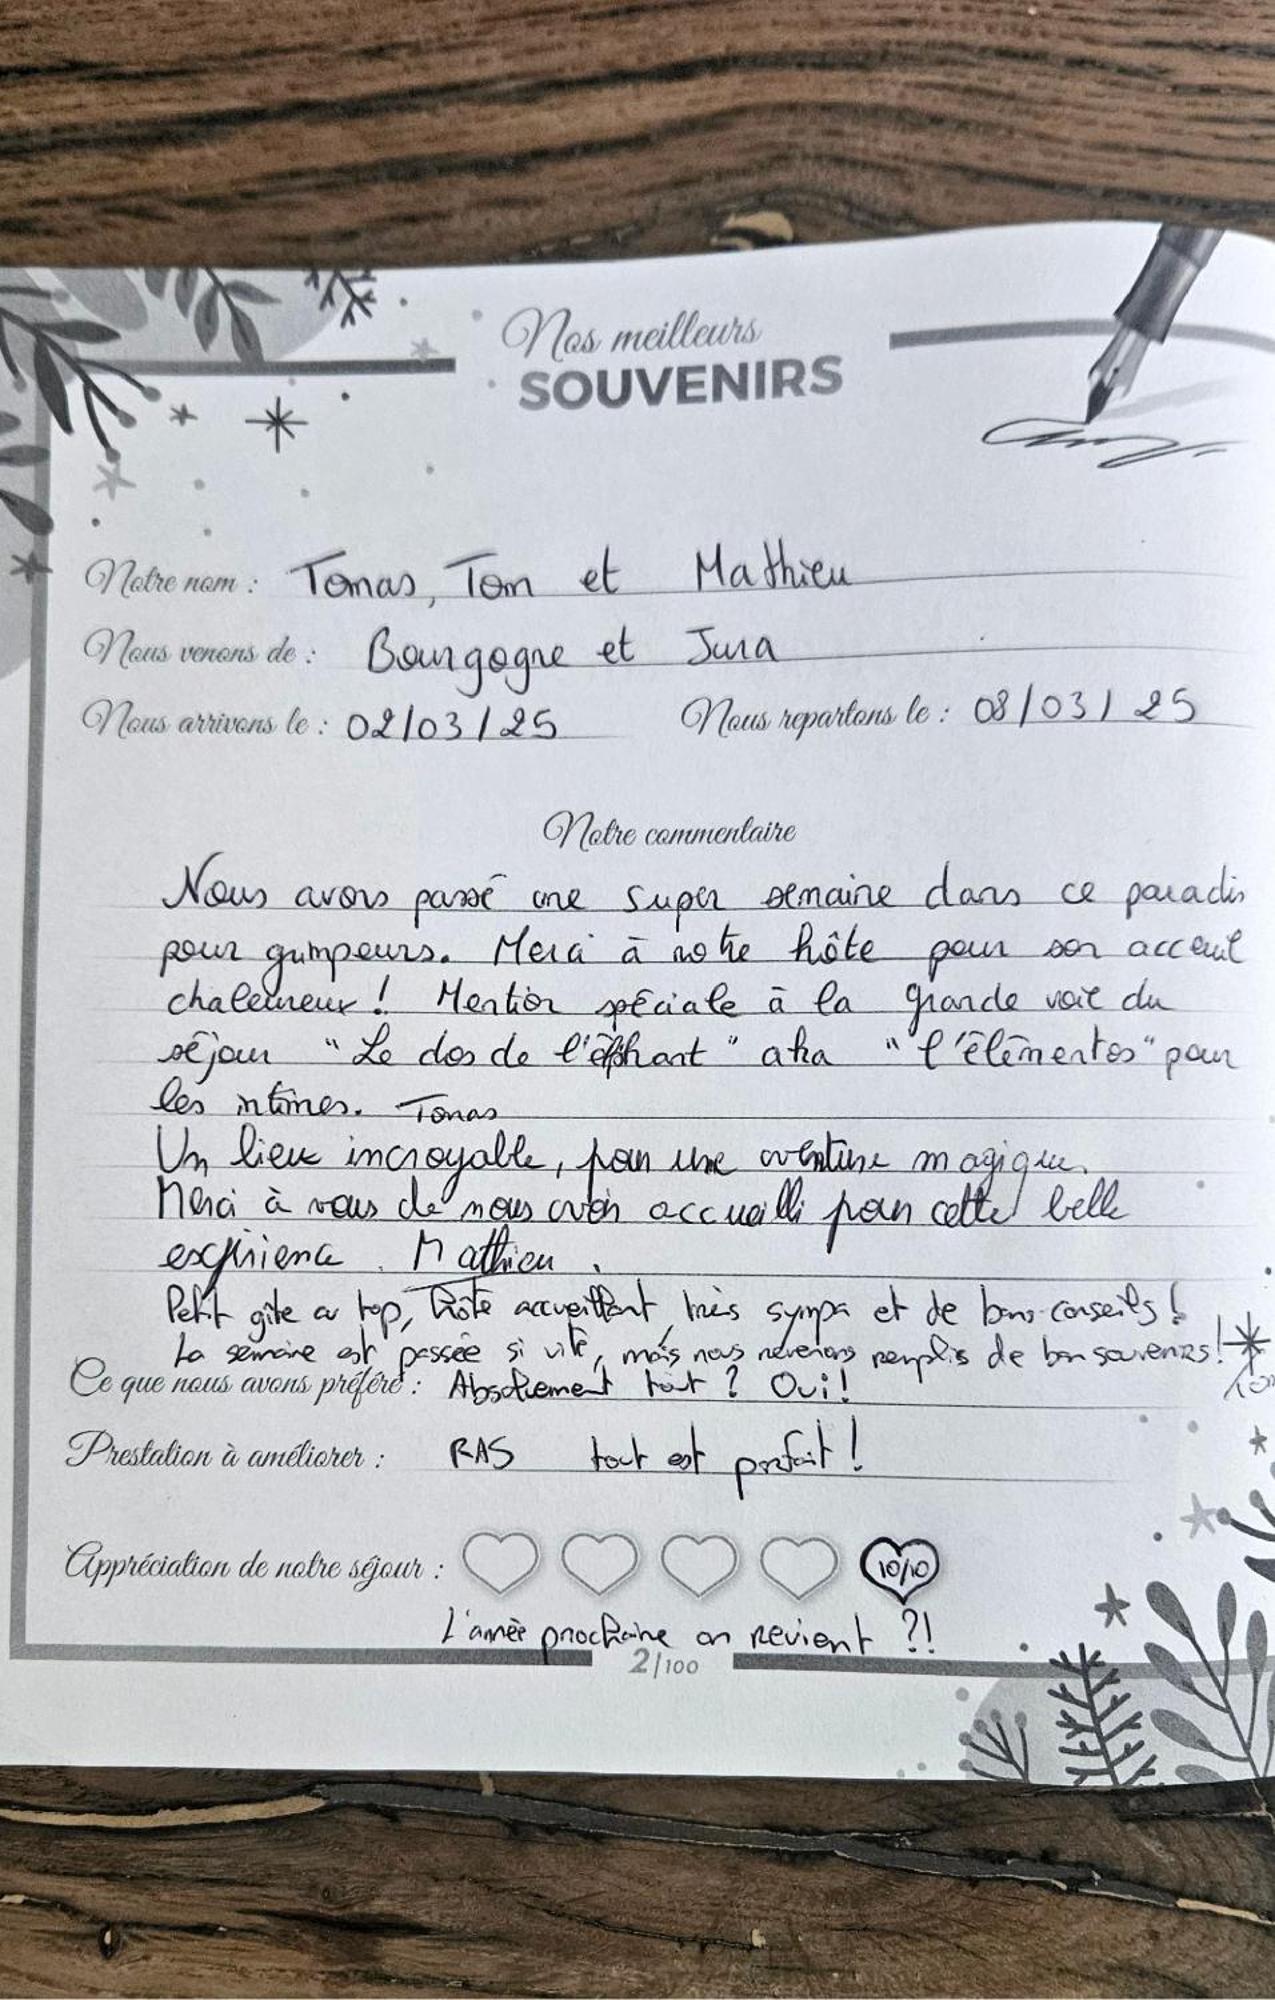 Nos meilleurs
SOUVENIRS
Notre nom : Tomas, Tom et Mathieu
Nous venons de : Bourgogne et Jura
Nous arrivons le : 02/03/25 Nous repartons le : 08/03/25
Notre commentaire
Nous avons passé une super semaine dans ce paradis
pour grimpeurs. Merci à notre hôte pour son acceuil
chaleureux ! Mention spéciale à la grande voie du
séjour "Le dos de l'éléphant" aka "l'élémentos" pour
les intimes. Tomas
Un lieu incroyable, pour une aventure magique.
Merci à vous de nous avoir accueilli pour cette belle
expérience. Mathieu.
Petit gîte au top, hôte accueillant, très sympa et de bons conseils !
La semaine est passée si vite, mais nous revenons remplis de bon souvenirs !
Tom
Ce que nous avons préféré : Absolument tout ? Oui !
Prestation à améliorer : RAS tout est parfait !
Appréciation de notre séjour : 10/10
L'année prochaine on revient ?!
2/100